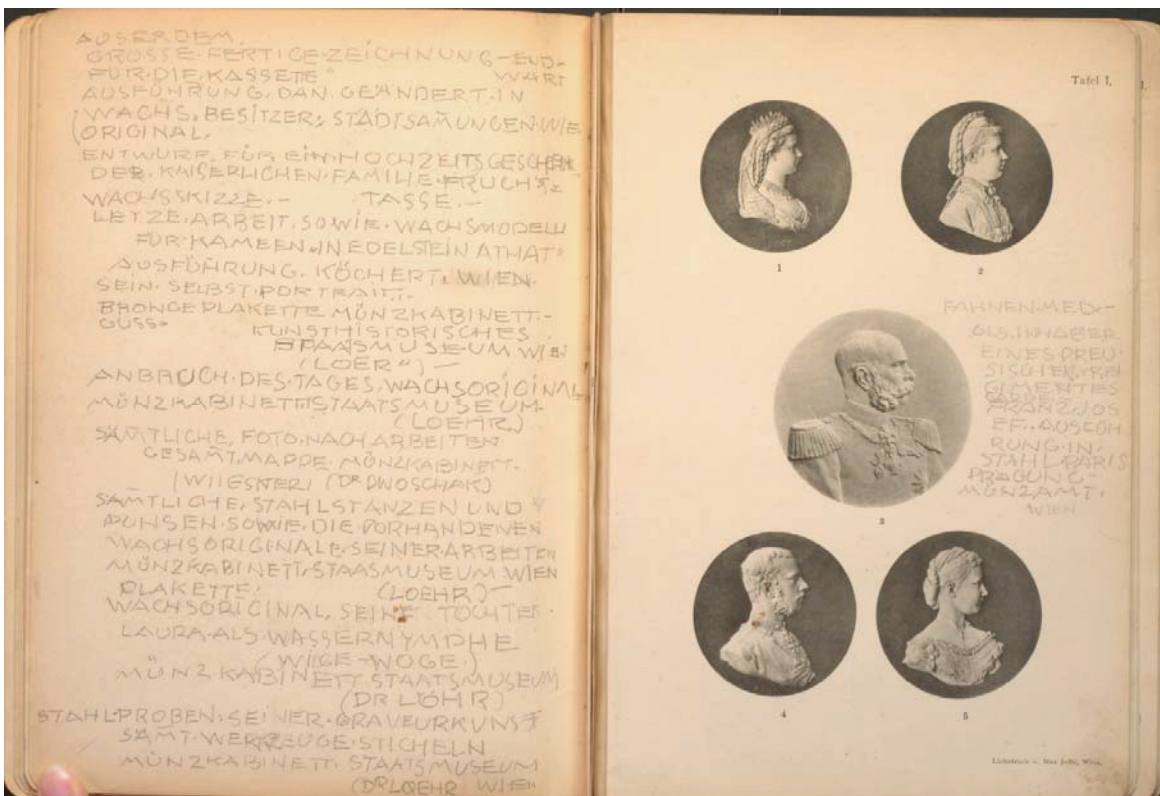 AUSERDEM.
GROSSE·FERTIGE·ZEICHNUNG-END-
FÜR·DIE·KASSETTE" WURF
AUSFÜHRUNG. DAN. GEÄNDERT·IN
WACHS. BESITZER: STÄDTSAMUNGEN·WIE
(ORIGINAL.
ENTWURF. FÜR·EIN·HOCHZEITSGESCHENK
DER·KAISERLICHEN·FAMILIE·FRUCHT
WACHSSKIZZE.- TASSE.-
LETZE·ARBEIT. SOWIE·WACHSMODELL
FÜR·KAMEEN·IN EDELSTEIN
AUSFÜHRUNG. KÖCHERT. WIEN.
SEIN·SELBST·PORTRAIT.
BRONGEPLAKETTE MÜNZKABINETT-
GUSS- KUNSTHISTORISCHES
STAASMUSEUM WIEN
(LOER") -
ANBRUCH·DES·TAGES. WACHSORIGINAL
MÜNZKABINETT·STAATSMUSEUM-
(LOEHR.)
SÄMTLICHE. FOTO·NACH ARBEITEN
GESAMT·MAPPE·MÜNZKABINETT.
(DR DWOSCHAK)
SÄMTLICHE. STAHLSTANZEN UND
PUNSEN·SOWIE·DIE VORHANDENEN
WACHSORIGINALE·SEINER·ARBEITEN
MÜNZKABINETT·STAASMUSEUM WIEN
PLAKETTE. (LOEHR)-
WACHSORIGINAL. SEINE TOCHTER·
LAURA·ALS·WASSERNYMPHE
(WIGE-WOGE.)
MÜNZKABINETT·STAATSMUSEUM
(DR LÖHR)
STAHLPROBEN·SEINER·GRAVEURKUNST
SAMT·WERKZEUGE·STICHELN
MÜNZKABINETT. STAATSMUSEUM
(DR LOEHR) WIEN
Tafel I.
I.
1
2
FAHNEN·MED·-
ALS·INHABER
EINES·PREU-
SISCHEN·REI
GIMENTES
FRANZ·JOS
EF. AUSFÜH
RUNG·IN·
STAHL·PARIS
PRÄGUNG-
MÜNZAMT.
WIEN
3
4
5
Lichtdruck v. Max Jaffé, Wien.